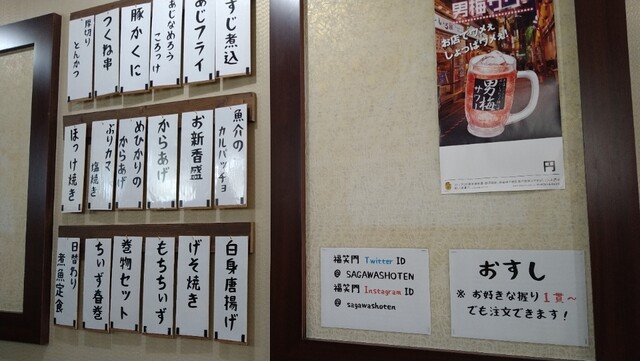 すじ煮込
あじフライ
あじなめろう
ころっけ
豚かくに
つくね串
厚切り
とんかつ
魚介の
カルパッチョ
お新香盛
からあげ
めひかりの
からあげ
ぶりカマ
塩焼き
ほっけ焼き
白身唐揚げ
げそ焼き
もちちいず
巻物セット
ちぃず春巻
日替わり
煮魚定食
男梅サワー
お店でウメぇ
しょっぱウメぇ!
男梅
サワー
円
福笑門 Twitter ID
@ SAGAWASHOTEN
福笑門 Instagram ID
@ sagawashoten
おすし
※ お好きな握り 1貫〜
でも注文できます!